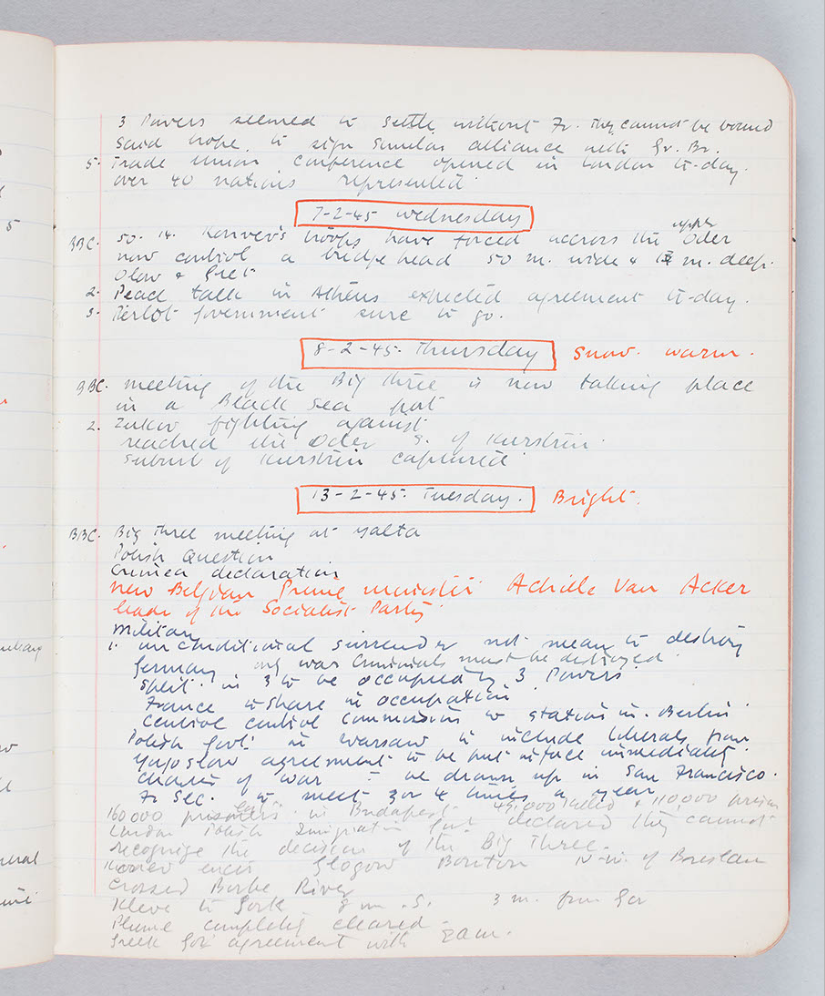 3 Powers seemed to settle without Fr. They cannot be bound
said hope to sign similar alliance with Gr. Br.
5. Trade Union conference opened in London to-day.
over 40 nations represented.
7-2-45 Wednesday
upper
BBC. 50. 14. Koniev's troops have forced accross the Oder
now control a bridge head 50 m. wide & m. deep.
Olow &
2. Peace talk in Athens expected agreement to-day.
3. Pierlot government sure to go.
8-2-45. Thursday Snow. warm.
BBC. meeting of the Big three is now taking place
in a Black Sea port
2. Zukov fighting against
reached the Oder S. of Kurstrin.
suburb of Kurstrin captured.
13-2-45. Tuesday. Bright.
BBC. Big Three meeting at Yalta
Polish Question
Crimea declaration
New Belgian Prime minister Achille Van Acker
leader of the Socialist Party.
Military
1. unconditional surrender not mean to destroy
Germany only war criminals must be destroyed.
Split in 3 to be occupied by 3 Powers
France to share in occupation
Central control commission to station in Berlin
Polish Govt. in Warsaw to include liberals from
Yugoslav agreement to be put in force immediately.
charter of war to be drawn up in San Francisco.
Fr Sec. to meet 3 or 4 times a year
160000 prisoners in Budapest 49,000 killed & 110,000
London Polish Emigration Govt declared they cannot
recognise the decision of the Big Three.
Koniev Glogow Bunton N-W. of Breslau
crossed Borbe River
Kleve to Gork 8 m. S. 3 m. from
completely cleared.
Greek Gov agreement with Eam.